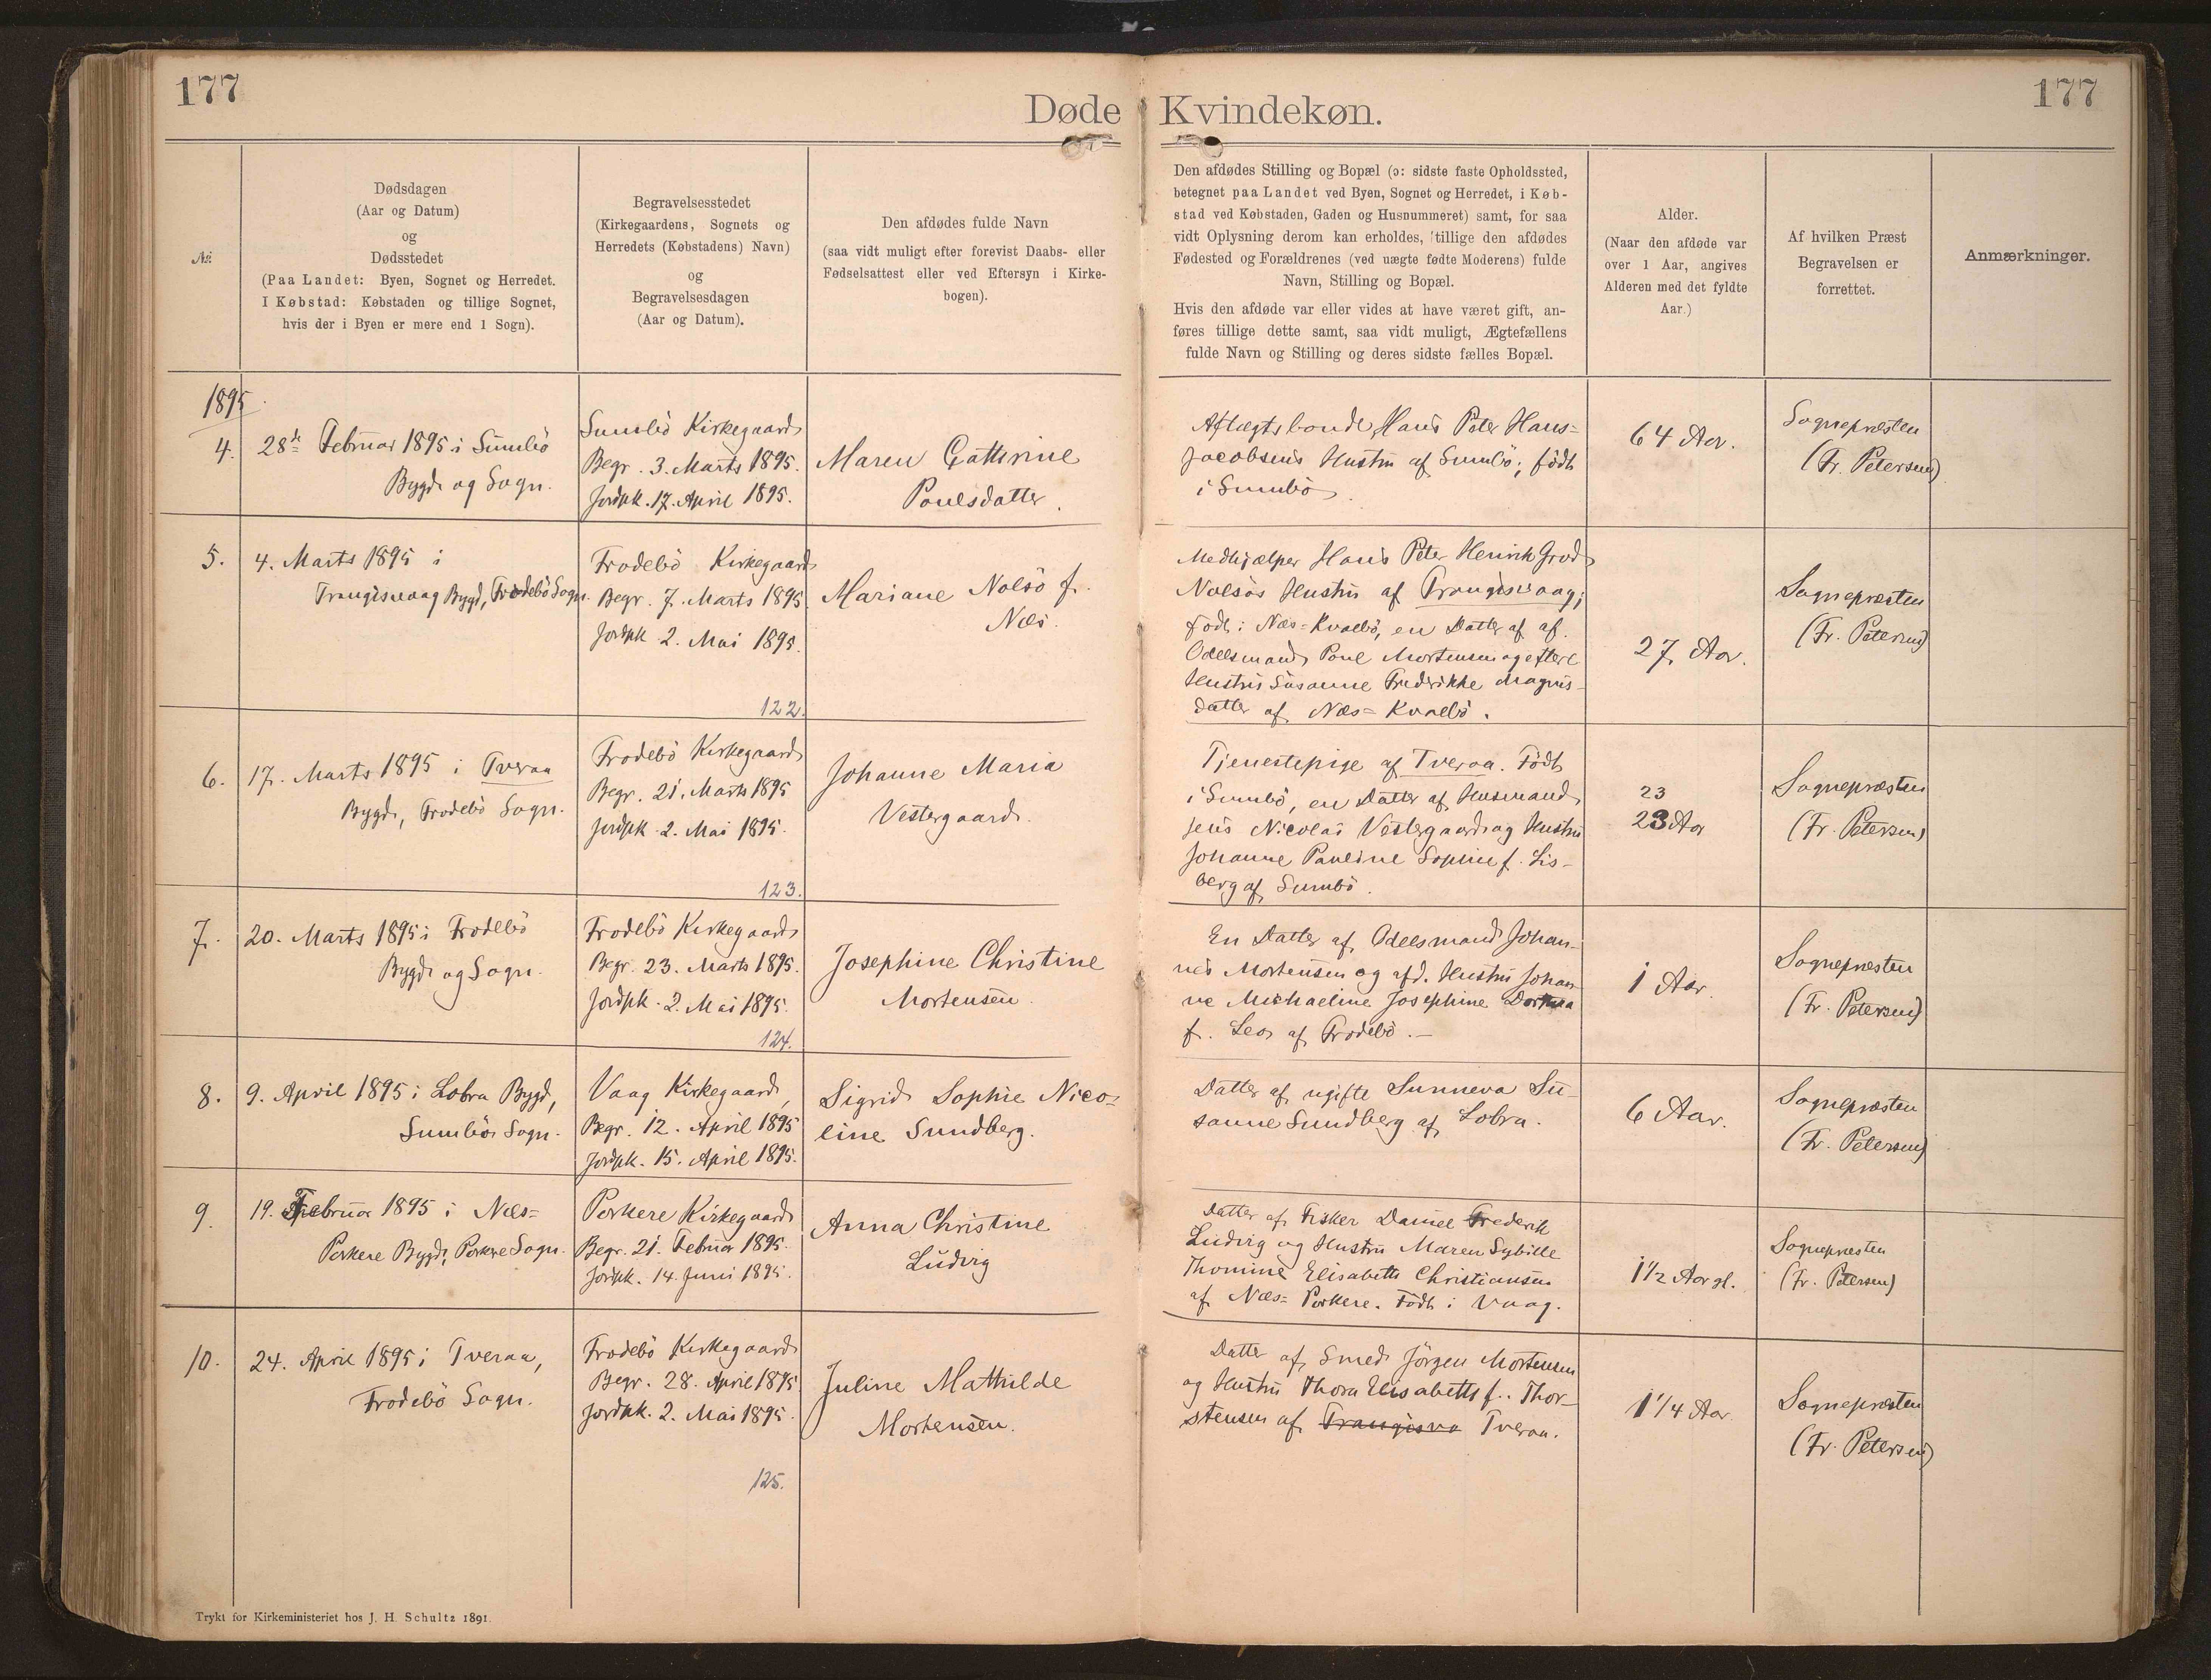 177
177
Døde Kvindekøn.
№
Dødsdagen
(Aar og Datum)
og
Dødsstedet
(Paa Landet: Byen, Sognet og Herredet.
I Købstad: Købstaden og tillige Sognet,
hvis der i Byen er mere end 1 Sogn).
Begravelsesstedet
(Kirkegaardens, Sognets og
Herredets (Købstadens) Navn)
og
Begravelsesdagen
(Aar og Datum).
Den afdødes fulde Navn
(saa vidt muligt efter forevist Daabs- eller
Fødselsattest eller ved Eftersyn i Kirke-
bogen).
Den afdødes Stilling og Bopæl (ɔ: sidste faste Opholdssted,
betegnet paa Landet ved Byen, Sognet og Herredet, i Køb-
stad ved Købstaden, Gaden og Husnummeret) samt, for saa
vidt Oplysning derom kan erholdes, tillige den afdødes
Fødested og Forældrenes (ved uægte fødte Moderens) fulde
Navn, Stilling og Bopæl.
Hvis den afdøde var eller vides at have været gift, an-
føres tillige dette samt, saa vidt muligt, Ægtefællens
fulde Navn og Stilling og deres sidste fælles Bopæl.
Alder.
(Naar den afdøde var
over 1 Aar, angives
Alderen med det fyldte
Aar.)
Af hvilken Præst
Begravelsen er
forrettet.
Anmærkninger.
1895
4.
28de Februar 1895 i Sumbö
Bygd og Sogn.
Sumbö Kirkegaard
Begr. 3. Marts 1895.
Jordpk. 17. April 1895.
Maren Cathrine
Poulsdatter.
Aftægtsbonde Hans Peter Hans=
Jacobsens Hustru af Sumbö; født
i Sumbö.
64 Aar.
Sognepræsten
(Fr. Petersen)
5.
4. Marts 1895 i
Trangisvaag Bygd, Frodebö Sogn.
Frodebö Kirkegaard
Begr. 7. Marts 1895
Jordpk 2. Mai 1895.
122.
Mariane Nolsö f.
Næs.
Medhjælper Hans Peter Henrik Grod
Nolsös Hustru af Trangisvaag;
Født i Næs=Kvalbö, en Datter af af.
Odelsmand Poul Mortensen og efterl
Hustru Susanne Frederikke Magnus-
datter af Næs=Kvalbö.
27 Aar.
Sognepræsten
(Fr. Petersen)
6.
17. Marts 1895 i Tveraa
Bygd, Frodebö Sogn.
Frodebö Kirkegaard
Begr. 21. Marts 1895
Jordpk. 2. Mai 1895.
123.
Johanne Maria
Vestergaard.
Tjenestepige af Tveraa. Født
i Sumbö, en Datter af Husmand
Jens Nicolai Vestergaard og Hustru
Johanne Pauline Sophie f. Lis-
berg af Sumbö.
23
23 Aar
Sognepræsten
(Fr. Petersen)
7.
20. Marts 1895 i Frodebö
Bygd og Sogn.
Frodebö Kirkegaard
Begr. 23. Marts 1895.
Jordpk. 2. Mai 1895.
124.
Josephine Christine
Mortensen.
En Datter af Odelsmand Johan-
nes Mortensen og afd. Hustru Johan
ne Michaeline Josephine
f. Leo af Frodebö.-
1 Aar.
Sognepræsten
(Fr. Petersen)
8.
9. April 1895 i Lobra Bygd,
Sumbö Sogn.
Vaag Kirkegaard,
Begr. 12. April 1895
Jordpk. 15. April 1895.
Sigrid Sophie Nico=
line Sundberg.
Datter af ugifte Sunneva Su-
sanne Sundberg af Lobra.
6 Aar.
Sognepræsten
(Fr. Petersen)
9.
19. Februar 1895 i Næs=
Porkere Bygd, Porkere Sogn.
Porkere Kirkegaard
Begr. 21. Februar 1895.
Jordpk. 14. Juni 1895.
Anna Christine
Ludvig
Datter af Fisker Daniel Frederik
Ludvig og Hustru Maren Sybille
Thomine Elisabeth Christiansen
af Næs=Porkere. Født i Vaag.
1½ Aar gl.
Sognepræsten
(Fr. Petersen)
10.
24. April 1895 i Tveraa,
Frodebö Sogn.
Frodebö Kirkegaard
Begr. 28. April 1895
Jordpk. 2. Mai 1895.
125.
Juline Mathilde
Mortensen.
Datter af Smed Jörgen Mortensen
og Hustru Thora Elisabeth f. Thor-
stensen af Trangisva Tveraa.
1 1/4 Aar
Sognepræsten
(Fr. Petersen)
Trykt for Kirkeministeriet hos J. H. Schultz 1891.